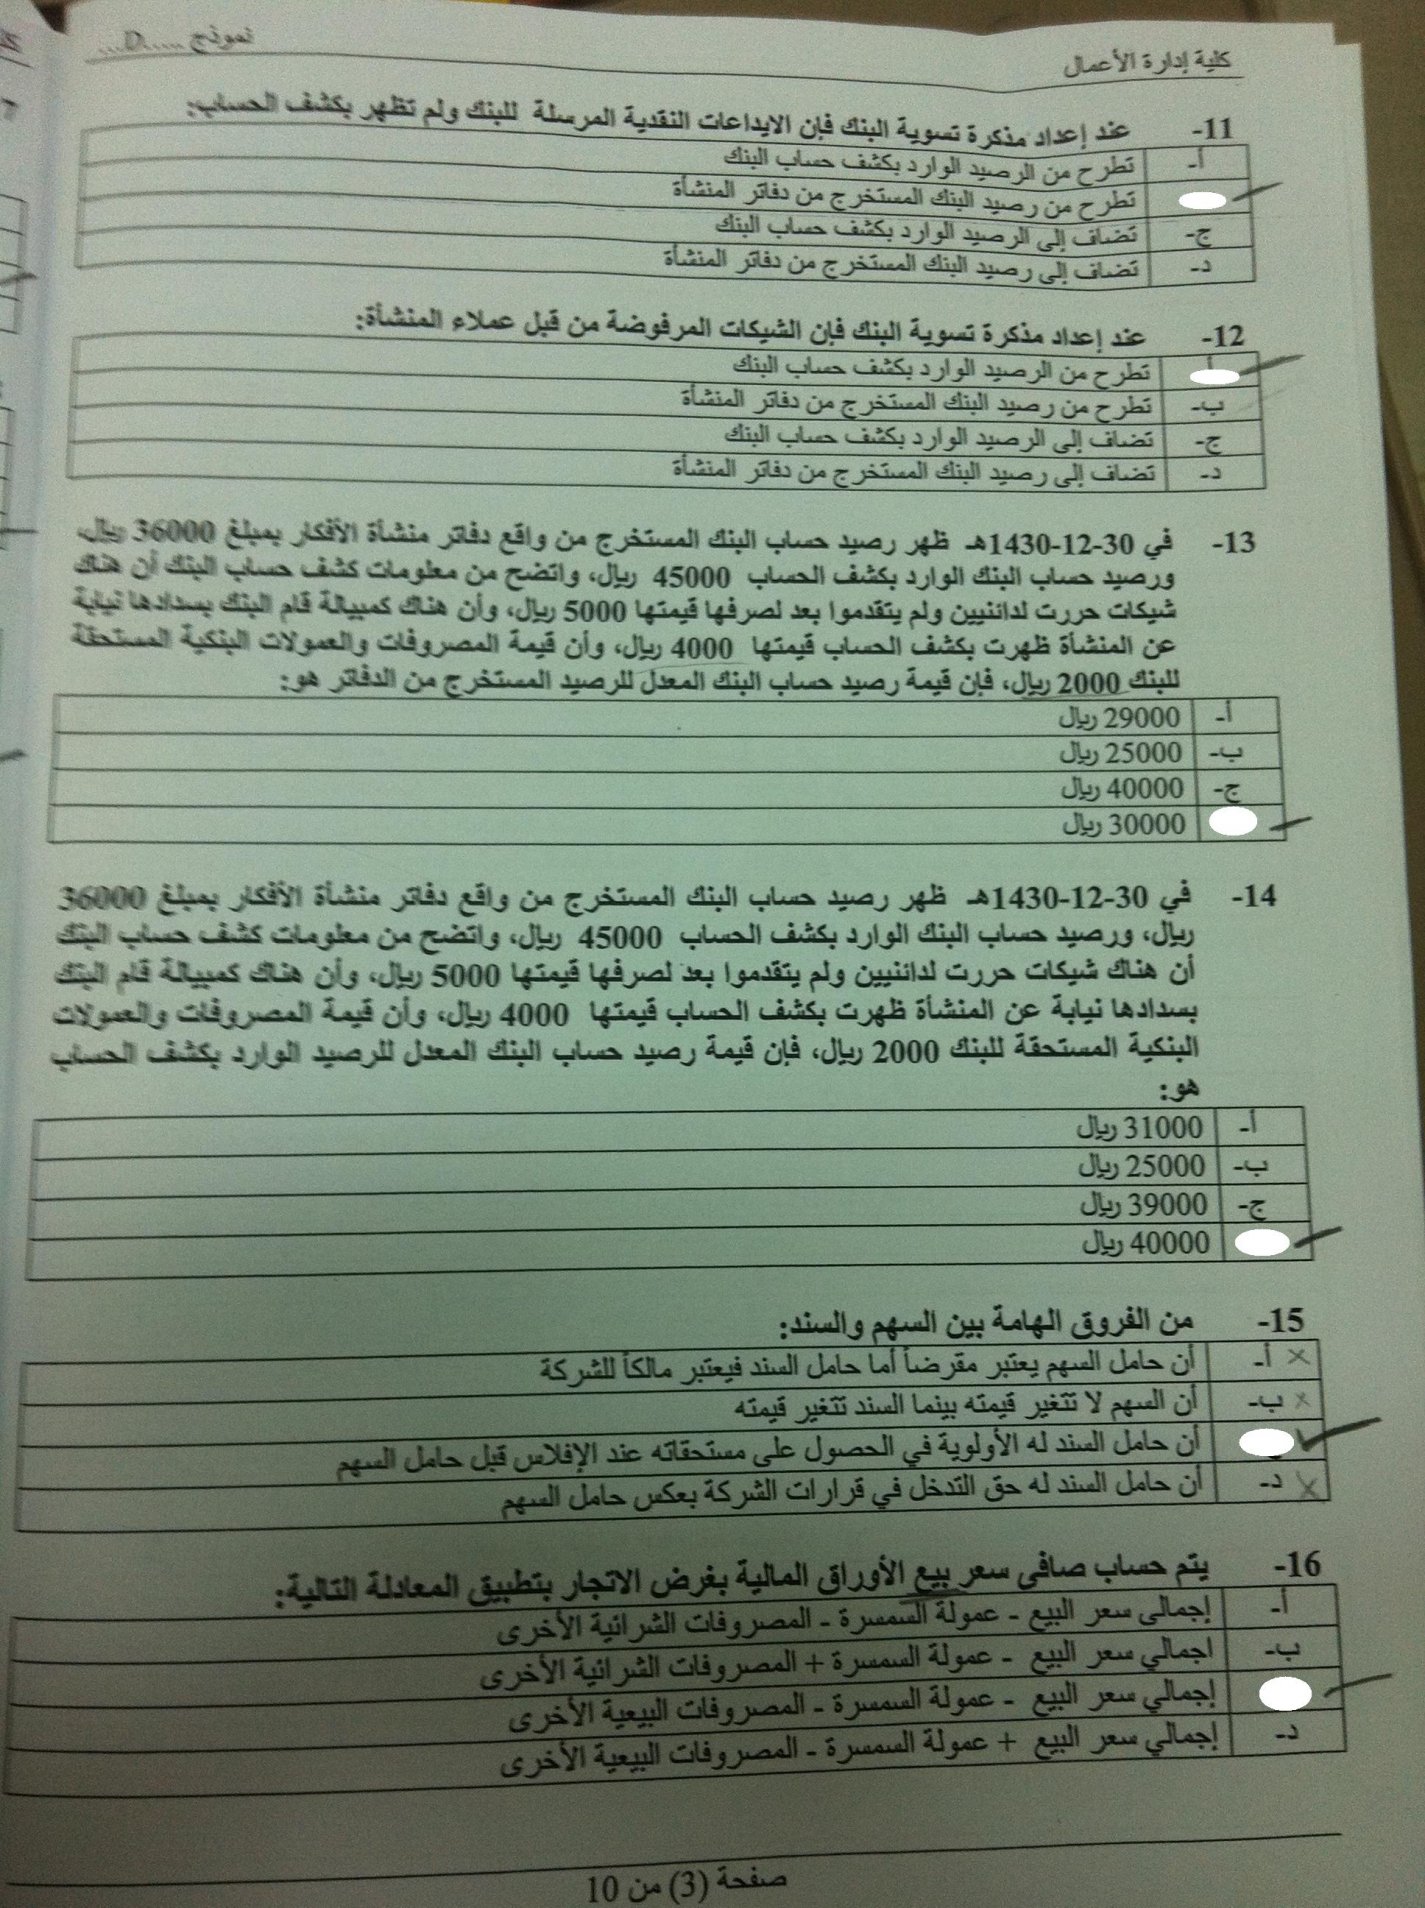 كلية إدارة الأعمال
نموذج .....D...
11- عند إعداد مذكرة تسوية البنك فإن الايداعات النقدية المرسلة للبنك ولم تظهر بكشف الحساب:
أ- تطرح من الرصيد الوارد بكشف حساب البنك
تطرح من رصيد البنك المستخرج من دفاتر المنشأة
ج- تضاف إلى الرصيد الوارد بكشف حساب البنك
د- تضاف إلى رصيد البنك المستخرج من دفاتر المنشأة
12- عند إعداد مذكرة تسوية البنك فإن الشيكات المرفوضة من قبل عملاء المنشأة:
تطرح من الرصيد الوارد بكشف حساب البنك
ب- تطرح من رصيد البنك المستخرج من دفاتر المنشأة
ج- تضاف إلى الرصيد الوارد بكشف حساب البنك
د- تضاف إلى رصيد البنك المستخرج من دفاتر المنشأة
13- في 30-12-1430هـ ظهر رصيد حساب البنك المستخرج من واقع دفاتر منشأة الأفكار بمبلغ 36000 ريال،
ورصيد حساب البنك الوارد بكشف الحساب 45000 ريال، واتضح من معلومات كشف حساب البنك أن هناك
شيكات حررت لدائنيين ولم يتقدموا بعد لصرفها قيمتها 5000 ريال، وأن هناك كمبيالة قام البنك بسدادها نيابة
عن المنشأة ظهرت بكشف الحساب قيمتها 4000 ريال، وأن قيمة المصروفات والعمولات البنكية المستحقة
للبنك 2000 ريال، فإن قيمة رصيد حساب البنك المعدل للرصيد المستخرج من الدفاتر هو:
أ- 29000 ريال
ب- 25000 ريال
ج- 40000 ريال
30000 ريال
14- في 30-12-1430هـ ظهر رصيد حساب البنك المستخرج من واقع دفاتر منشأة الأفكار بمبلغ 36000
ريال، ورصيد حساب البنك الوارد بكشف الحساب 45000 ريال، واتضح من معلومات كشف حساب البنك
أن هناك شيكات حررت لدائنيين ولم يتقدموا بعد لصرفها قيمتها 5000 ريال، وأن هناك كمبيالة قام البنك
بسدادها نيابة عن المنشأة ظهرت بكشف الحساب قيمتها 4000 ريال، وأن قيمة المصروفات والعمولات
البنكية المستحقة للبنك 2000 ريال، فإن قيمة رصيد حساب البنك المعدل للرصيد الوارد بكشف الحساب
هو:
أ- 31000 ريال
ب- 25000 ريال
ج- 39000 ريال
40000 ريال
15- من الفروق الهامة بين السهم والسند:
أ- أن حامل السهم يعتبر مقرضاً أما حامل السند فيعتبر مالكاً للشركة
ب- أن السهم لا تتغير قيمته بينما السند تتغير قيمته
أن حامل السند له الأولوية في الحصول على مستحقاته عند الإفلاس قبل حامل السهم
د- أن حامل السند له حق التدخل في قرارات الشركة بعكس حامل السهم
16- يتم حساب صافى سعر بيع الأوراق المالية بغرض الاتجار بتطبيق المعادلة التالية:
أ- إجمالى سعر البيع - عمولة السمسرة - المصروفات الشرائية الأخرى
ب- اجمالي سعر البيع - عمولة السمسرة + المصروفات الشرائية الأخرى
إجمالي سعر البيع - عمولة السمسرة - المصروفات البيعية الأخرى
د- إجمالي سعر البيع + عمولة السمسرة - المصروفات البيعية الأخرى
صفحة (3) من 10